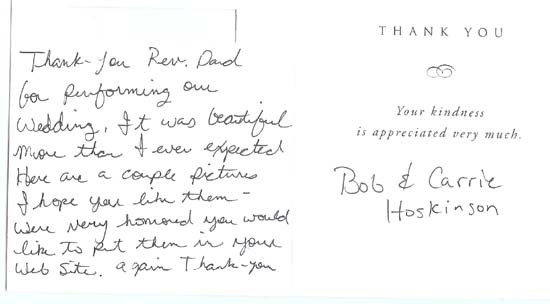 Thank-you Rev. David
for performing our
Wedding. It was beautiful
more than I ever expected
Here are a couple pictures
I hope you like them-
were very honored you would
like to put them in your
Web Site. again Thank-you
THANK YOU
Your kindness
is appreciated very much.
Bob & Carrie
Hoskinson